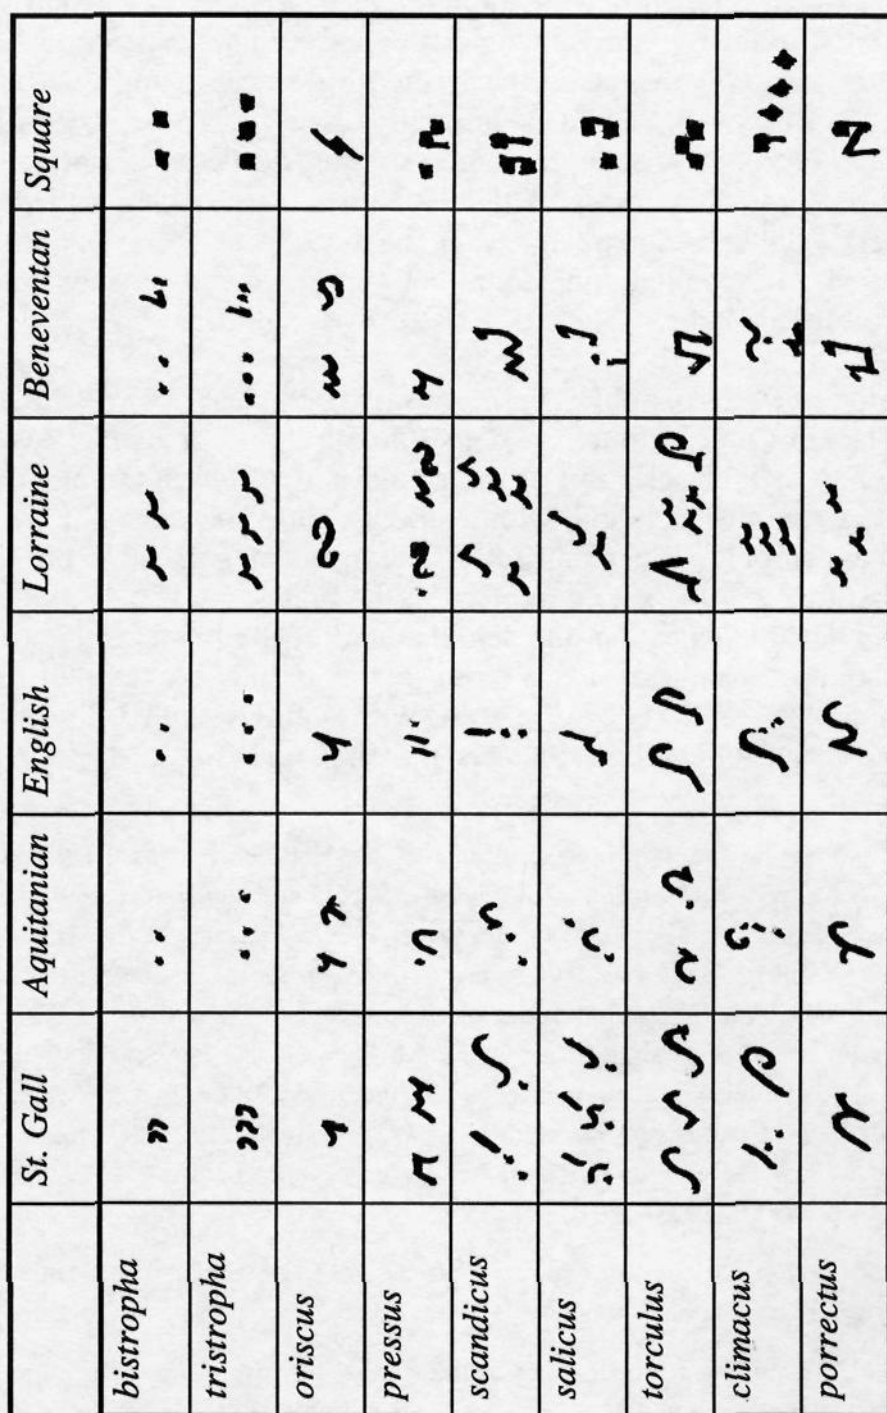 St. Gall Aquitanian English Lorraine Beneventan Square
bistropha
tristropha
oriscus
pressus
scandicus
salicus
torculus
climacus
porrectus